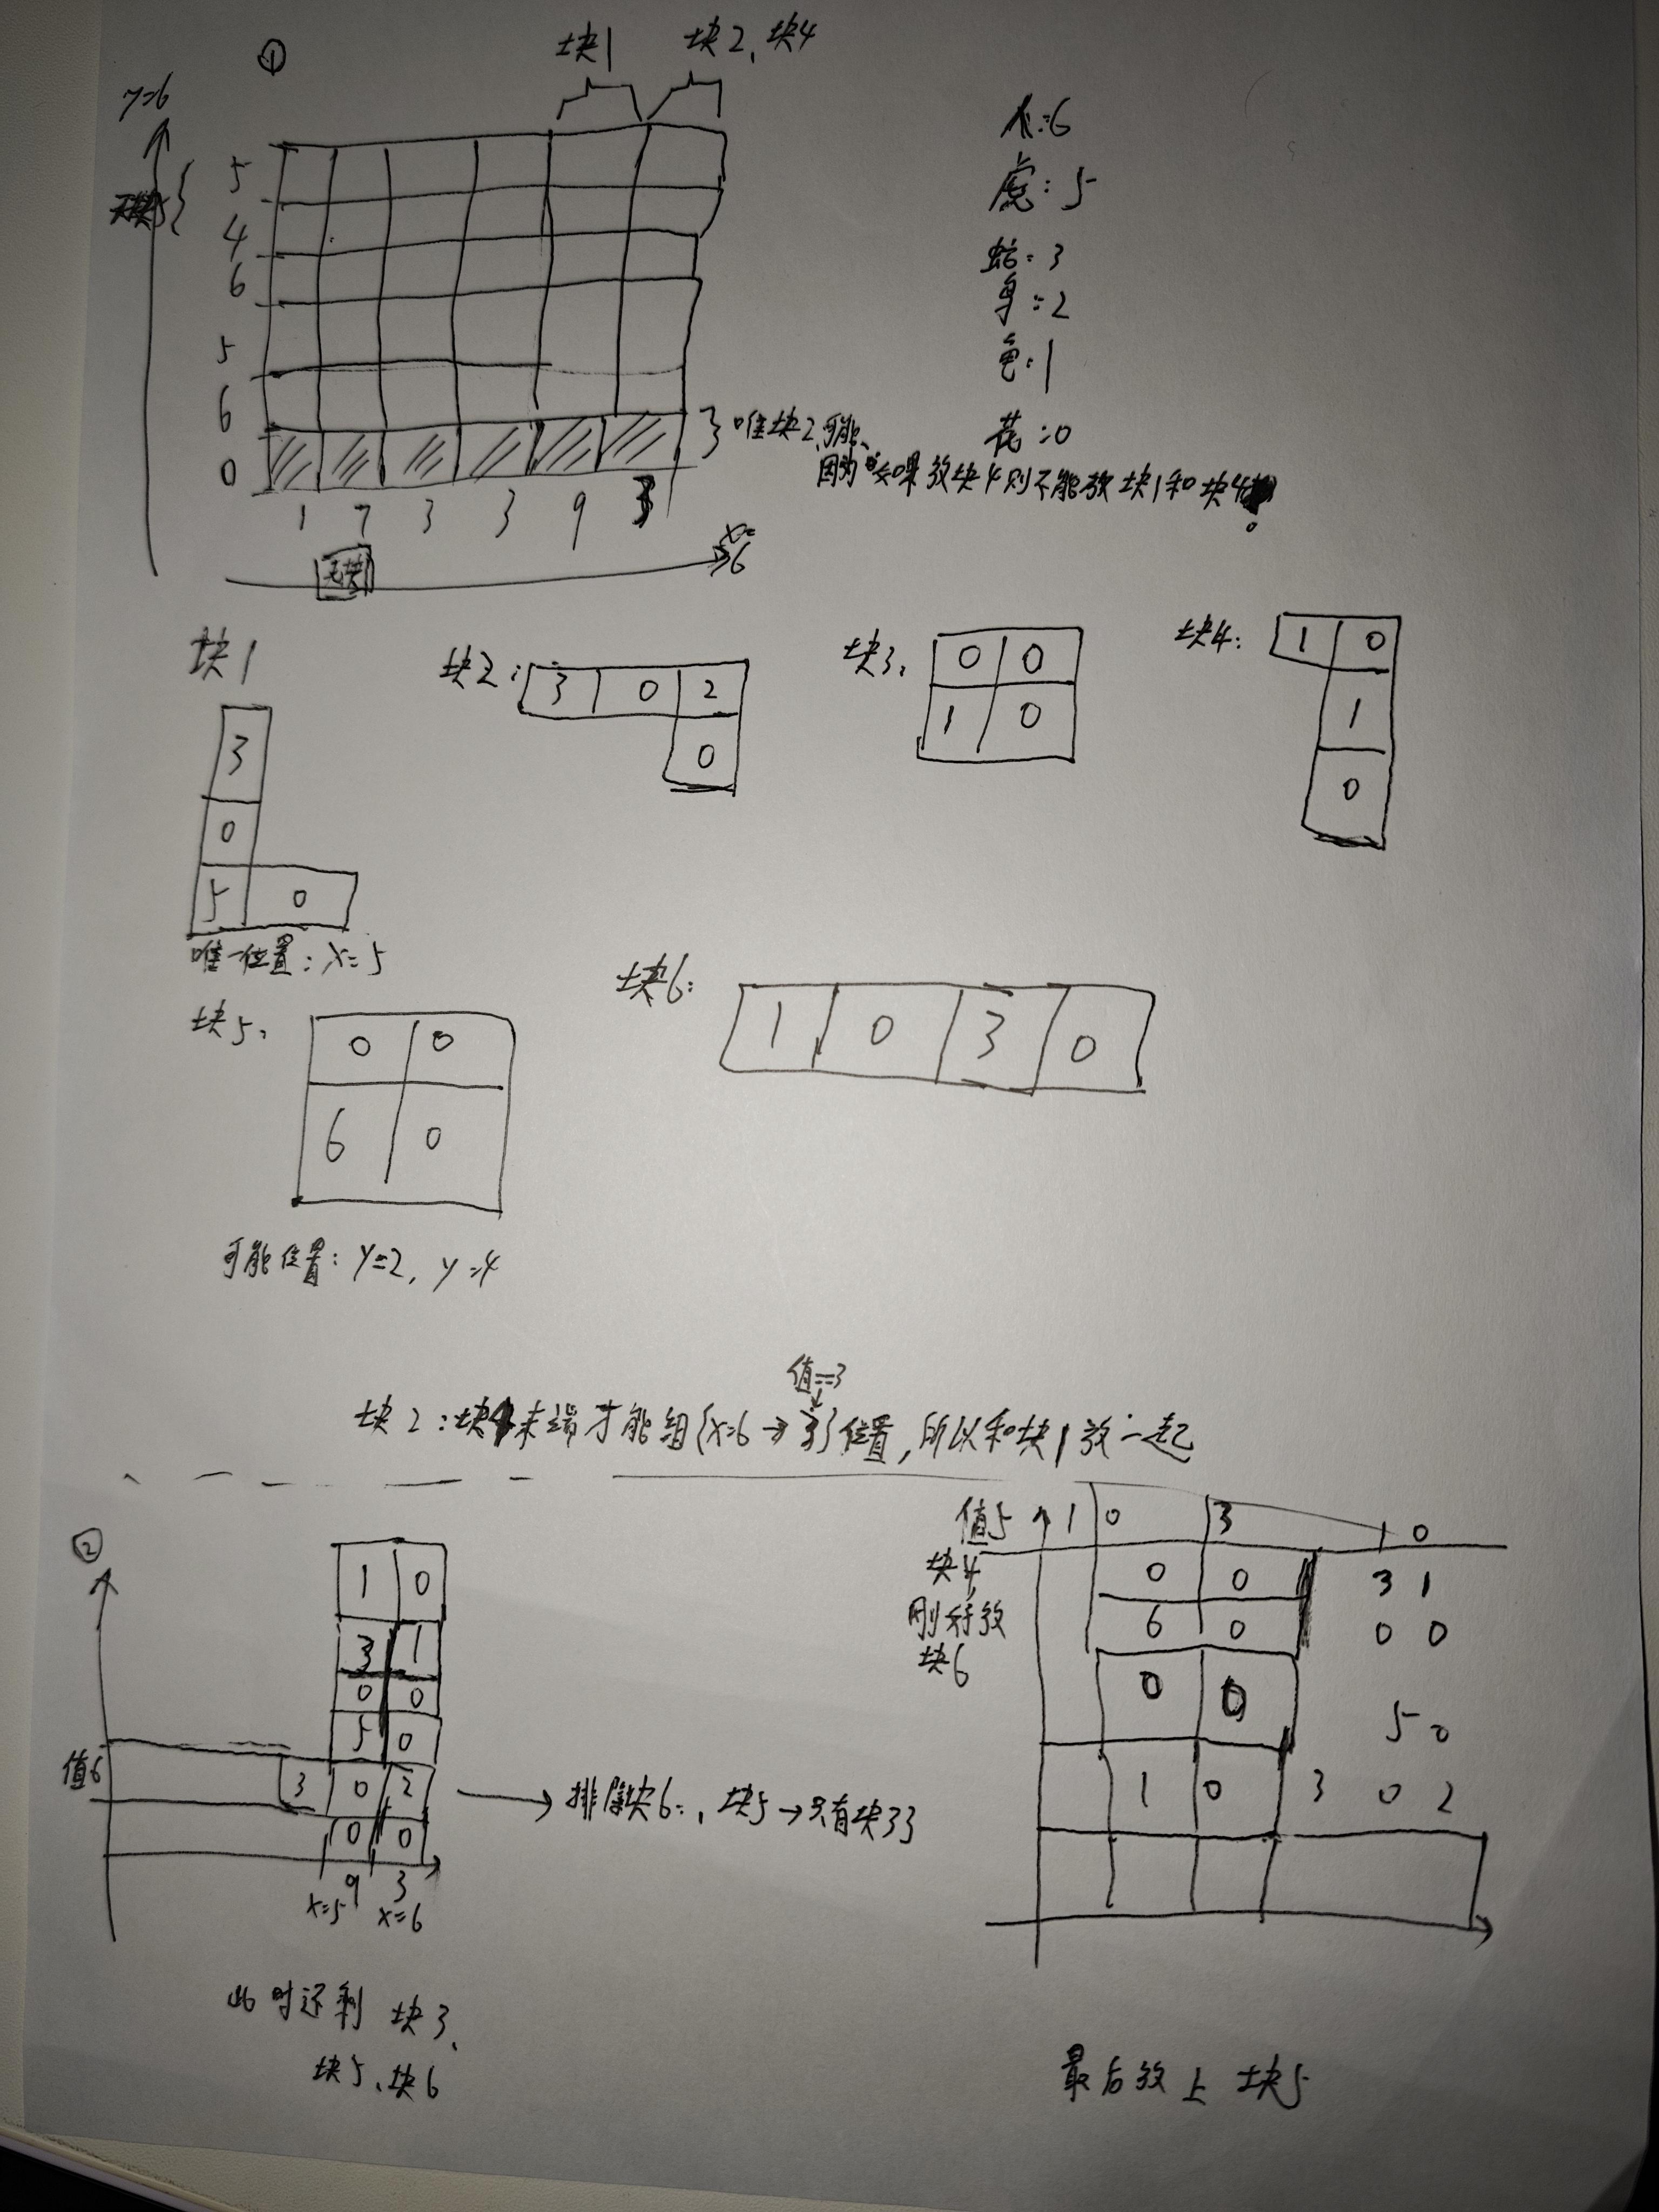 ①
块1 块2、块4
y=6
5
4
6
5
6
0
1 7 3 3 9 3
无块
x=6
:6
虎:5
蛤:3
鸟:2
鱼:1
花:0
唯块2可能、
因为如果放块4则不能放块1和块4
块1
3
0
5 0
唯一位置:x=5
块2:
3 0 2
0
块3:
0 0
1 0
块4:
1 0
1
0
块5:
0 0
6 0
可能位置:y=2, y=4
块6:
1 0 3 0
值=3
块2:块4末端才能组{x=6→3}位置,所以和块1放一起
②
1 0
3 1
0 0
5 0
值6
3 0 2
0 0
9 3
x=5 x=6
→排除块6、块5→只有块3
此时还剩 块3、
块5、块6
值5 1 0 3 1 0
块4
刚好放
块6
0 0 3 1
6 0 0 0
0 0 5 0
1 0 3 0 2
最后放上 块5